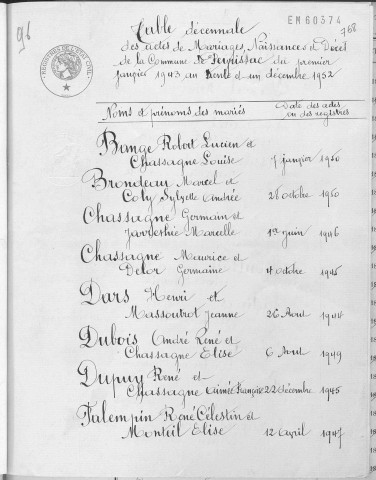 96
EM60374
768
Table décennale
des actes de Mariages, Naissances et Décès
de la Commune de Peyrissac du premier
janvier 1943 au trente et un décembre 1952
Noms et prénoms des mariés Date des actes
ou des registres
Bunge Robert Lucien et
Chassagne Louise 7 janvier 1950
Brondeau Marcel et
Coly Sylvette Andrée 28 octobre 1950
Chassagne Germain et
Marcelle 1er juin 1946
Chassagne Maurice et
Delor Germaine 4 octobre 1945
Dars Henri et
Massoutrot Jeanne 26 Août 1944
Dubois André René et
Chassagne Elise 6 Avril 1949
Dupuy René et
Chassagne Aimée Françoise 22 décembre 1945
Talempin René Célestin et
Monteil Elise 12 avril 1947